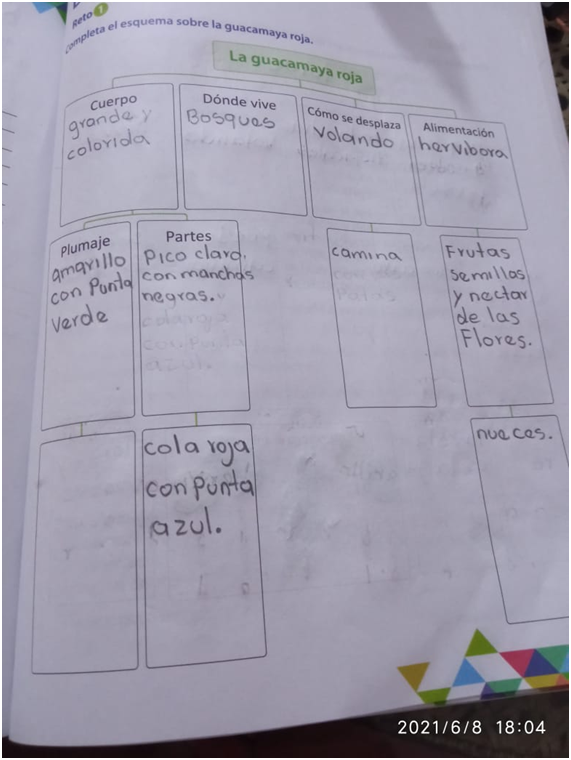 Reto 1
Completa el esquema sobre la guacamaya roja.
La guacamaya roja
Cuerpo
grande y
colorida
Dónde vive
Bosques
Cómo se desplaza
Volando
Alimentación
hervibora
Plumaje
amarillo
con Punta
verde
Partes
Pico claro.
con manchas
negras.
camina
Frutas
semillas
y nectar
de las
Flores.
cola roja
con Punta
azul.
nueces.
2021/6/8 18:04